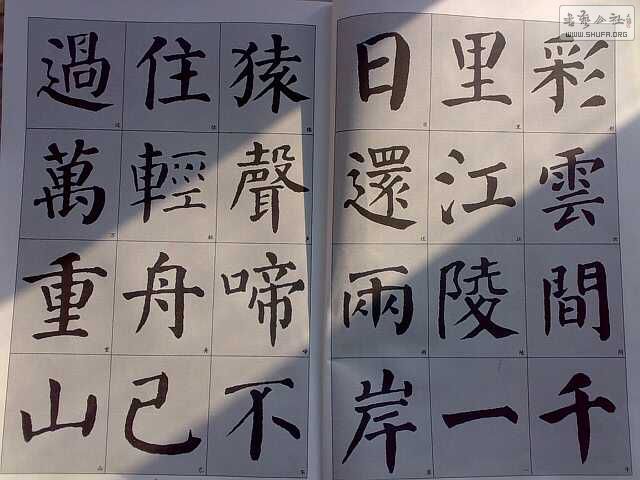 彩雲間千
里江陵一
日還兩岸
猿聲啼不
住輕舟已
過萬重山
书艺公社
WWW.SHUFA.ORG